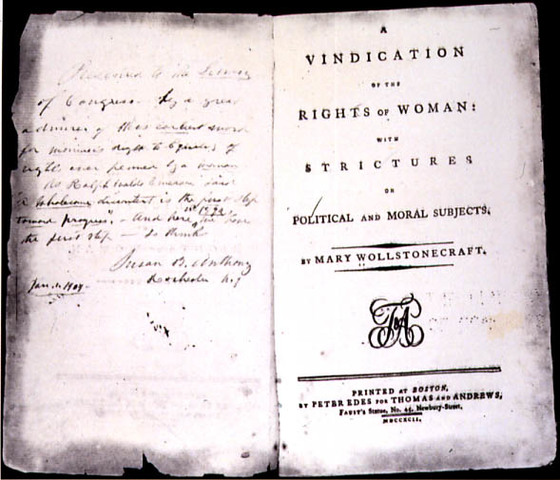 Presented to the Library
of Congress by a great
admirer of this earliest word
for woman's right to Equality of
rights ever penned by a woman
As Ralph Waldo Emerson said
"A wholesome discontent is the first step
toward progress" - And here in 1792 we have
the first step - so thinks
Susan B. Anthony
Rochester N.Y
Jan. 1. 1904.
A
VINDICATION
OF THE
RIGHTS OF WOMAN:
WITH
STRICTURES
ON
POLITICAL AND MORAL SUBJECTS.
BY MARY WOLLSTONECRAFT.
T&A
PRINTED AT BOSTON,
BY PETER EDES FOR THOMAS AND ANDREWS,
FAUST'S Statue, No. 45, Newbury-Street,
MDCCXCII.